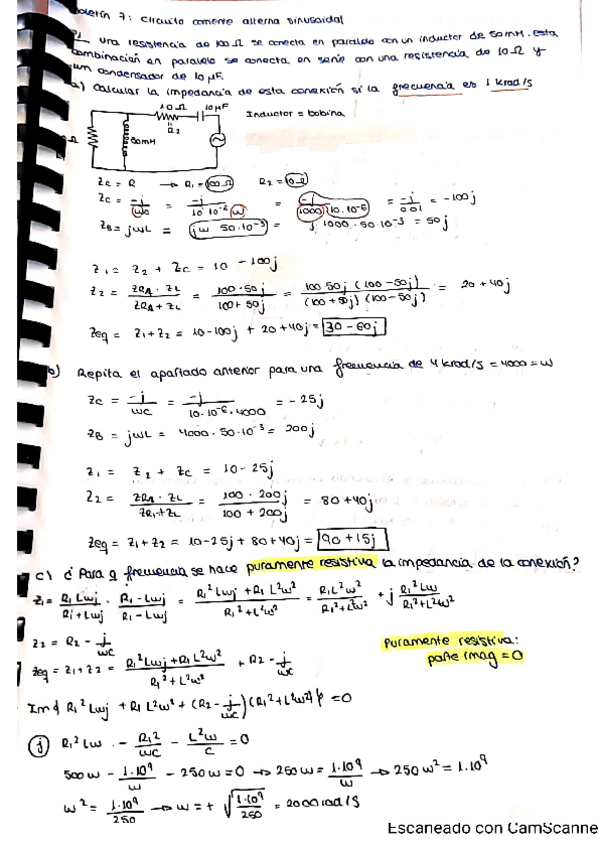 Boletín 7: Circuito corriente alterna sinusoidal
una resistencia de 100Ω se conecta en paralelo con un inductor de 50mH. Esta
combinación en paralelo se conecta en serie con una resistencia de 10Ω y
un condensador de 10μF.
a) Calcular la impedancia de esta conexión si la frecuencia es 1 krad/s
10Ω 10μF Inductor = bobina
R2
Ω 50mH
ZR = R → R1 = 100Ω R2 = 10Ω
ZC = -j/ωC = -j/10·10⁻⁶ω = -j/1000·10·10⁻⁶ = -j/0'01 = -100j
ZB = jωL = jω 50·10⁻³ = j·1000·50·10⁻³ = 50j
Z1 = Z2 + ZC = 10 - 100j
Z2 = ZRA·ZL/ZRA+ZL = 100·50j/100+50j = 100·50j (100-50j)/(100+50j)(100-50j) = 20+40j
Zeq = Z1+Z2 = 10-100j + 20+40j = 30-60j
b) Repita el apartado anterior para una frecuencia de 4 krad/s = 4000 = ω
ZC = -j/ωC = -j/10·10⁻⁶·4000 = -25j
ZB = jωL = 4000·50·10⁻³ = 200j
Z1 = Z2 + ZC = 10-25j
Z2 = ZRA·ZL/ZR1+ZL = 100·200j/100+200j = 80+40j
Zeq = Z1+Z2 = 10-25j+80+40j = 90+15j
c) ¿Para q frecuencia se hace puramente resistiva la impedancia de la conexión?
Z1 = R1Lωj/R1+Lωj · R1-Lωj/R1-Lωj = R1²Lωj+R1L²ω²/R1²+L²ω² = R1L²ω²/R1²+L²ω² + j R1²Lω/R1²+L²ω²
Z2 = R2 - j/ωC
Puramente resistiva:
parte imag = 0
Zeq = Z1+Z2 = R1²Lωj+R1L²ω²/R1²+L²ω² + R2 - j/ωC
Im{R1²Lωj + R1L²ω² + (R2 - j/ωC)(R1²+L²ω²)} = 0
(j) R1²Lω - R1²/ωC - L²ω/C = 0
500ω - 1·10⁹/ω - 250ω = 0 → 250ω = 1·10⁹/ω → 250ω² = 1·10⁹
ω² = 1·10⁹/250 → ω = + √1·10⁹/250 = 2000rad/s
Escaneado con CamScanne